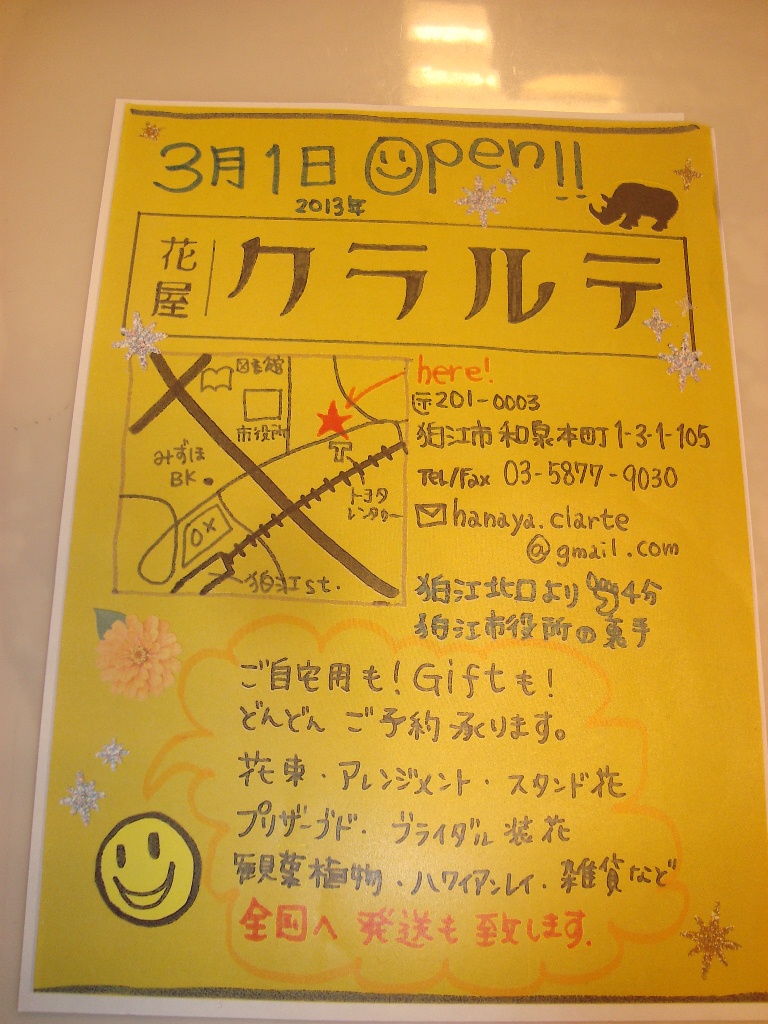 3月1日 Open!!
2013年
花屋 クラルテ
図書館
市役所
みずほ
BK
トヨタ
レンタカー
OX
狛江st.
here!
〒201-0003
狛江市和泉本町1-3-1-105
Tel/Fax 03-5877-9030
hanaya.clarte
@gmail.com
狛江北口より 4分
狛江市役所の裏手
ご自宅用も!Giftも!
どんどん ご予約承ります。
花束・アレンジメント・スタンド花
プリザーブド・ブライダル装花
観葉植物・ハワイアンレイ・雑貨など
全国へ 発送も 致します.